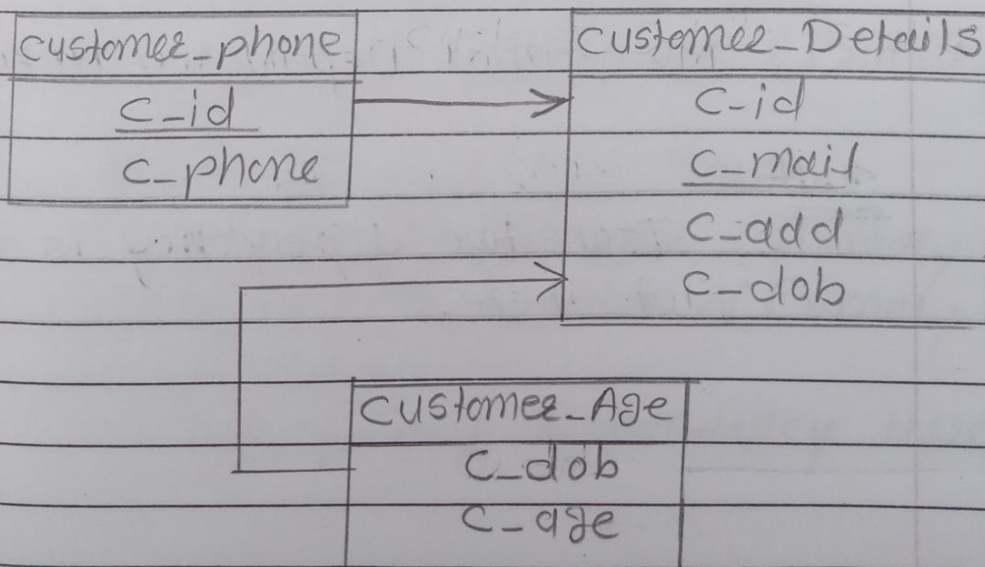 customer_phone
c_id
c_phone
customer_Details
c-id
c_mail
c-add
c-dob
customer_Age
c_dob
c-age